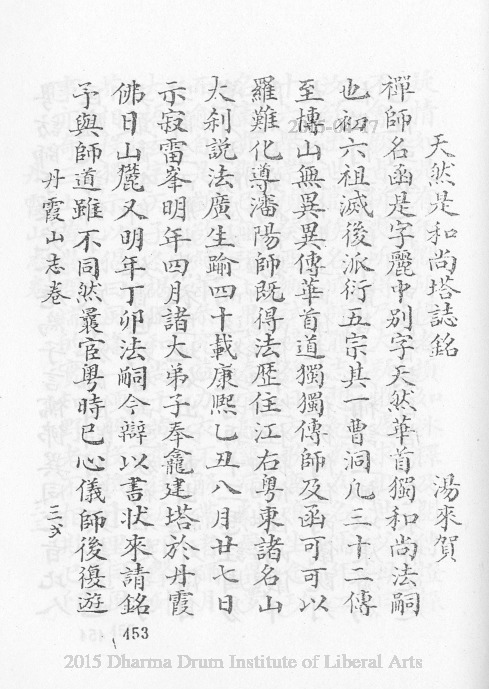 天然是和尚塔誌銘 湯來賀
禪師名函是字麗中別字天然華首獨和尚法嗣
也初六祖滅後派衍五宗其一曹洞凡三十二傳
至摶山無異異傳華首道獨獨傳師及函可可以
羅難化導瀋陽師既得法歷住江右粵東諸名山
大刹説法廣生踰四十載康熙乙丑八月廿七日
示寂雷峯明年四月諸大弟子奉龕建塔於丹霞
佛日山麓又明年丁卯法嗣今辯以書狀來請銘
予與師道雖不同然曩宦粵時已心儀師後復遊
丹霞山志卷
453
2015 Dharma Drum Institute of Liberal Arts